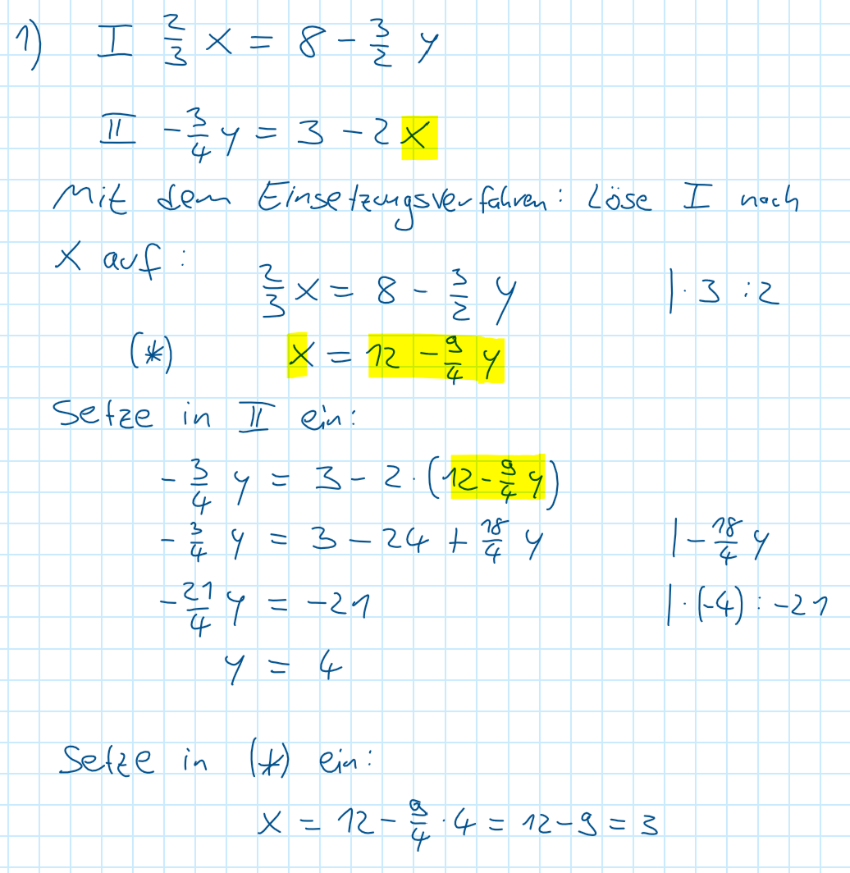 1) I 2/3 x = 8 - 3/2 y
II -3/4 y = 3 - 2x
Mit dem Einsetzungsverfahren: Löse I nach
x auf:
2/3 x = 8 - 3/2 y |·3 :2
(*) x = 12 - 9/4 y
Setze in II ein:
-3/4 y = 3 - 2·(12 - 9/4 y)
-3/4 y = 3 - 24 + 18/4 y |-18/4 y
-21/4 y = -21 |·(-4) : -21
y = 4
Setze in (*) ein:
x = 12 - 9/4 · 4 = 12 - 9 = 3